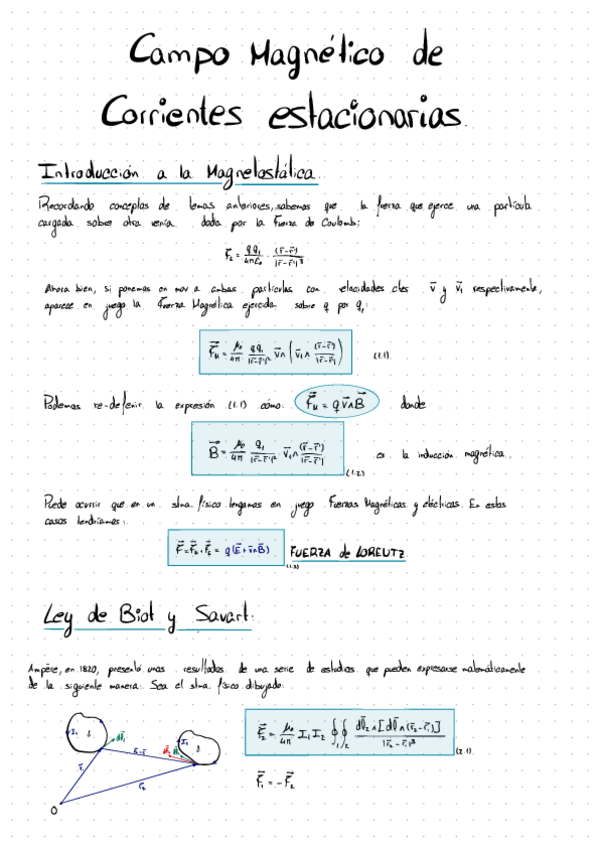 Campo Magnético de
Corrientes estacionarias.
Introducción a la Magnetostática.
Recordando conceptos de temas anteriores, sabemos que la fuerza que ejerce una partícula
cargada sobre otra venía dada por la Fuerza de Coulomb:
F₂ = qq₁/4πε₀ · (r̄-r̄')/|r̄-r̄'|³
Ahora bien, si ponemos en mov a ambas partículas con velocidades ctes v̄ y v̄₁ respectivamente,
aparece en juego la Fuerza Magnética ejercida sobre q por q₁:
F⃗ₘ = μ₀/4π qq₁/|r̄-r̄'|² v̄∧(v̄₁∧(r̄-r̄')/|r̄-r̄'|) (1.1)
Podemos re-definir la expresión (1.1) cómo: F⃗ₘ = q v̄∧B⃗ donde
B⃗ = μ₀/4π q₁/|r̄-r̄'|² · v̄₁∧(r̄-r̄')/|r̄-r̄'| es la inducción magnética.
(1.2)
Puede ocurrir que en un stma físico tengamos en juego Fuerzas Magnéticas y eléctricas. En estos
casos tendríamos:
F⃗ = F⃗ₘ + F⃗₂ = q(E⃗ + v̄∧B⃗) FUERZA de LOREUTZ
(1.3)
Ley de Biot y Savart:
Ampère, en 1820, presentó unos resultados de una serie de estudios que pueden expresarse matemáticamente
de la siguiente manera: Sea el stma físico dibujado:
F⃗₂ = μ₀/4π I₁ I₂ ∮₁∮₂ dl⃗₂∧[dl⃗∧(r̄₂-r̄₁)]/|r̄₂-r̄₁|³ (2.1)
F⃗₁ = -F⃗₂
I₁
dl⃗₁
r̄₁
r̄₂
O